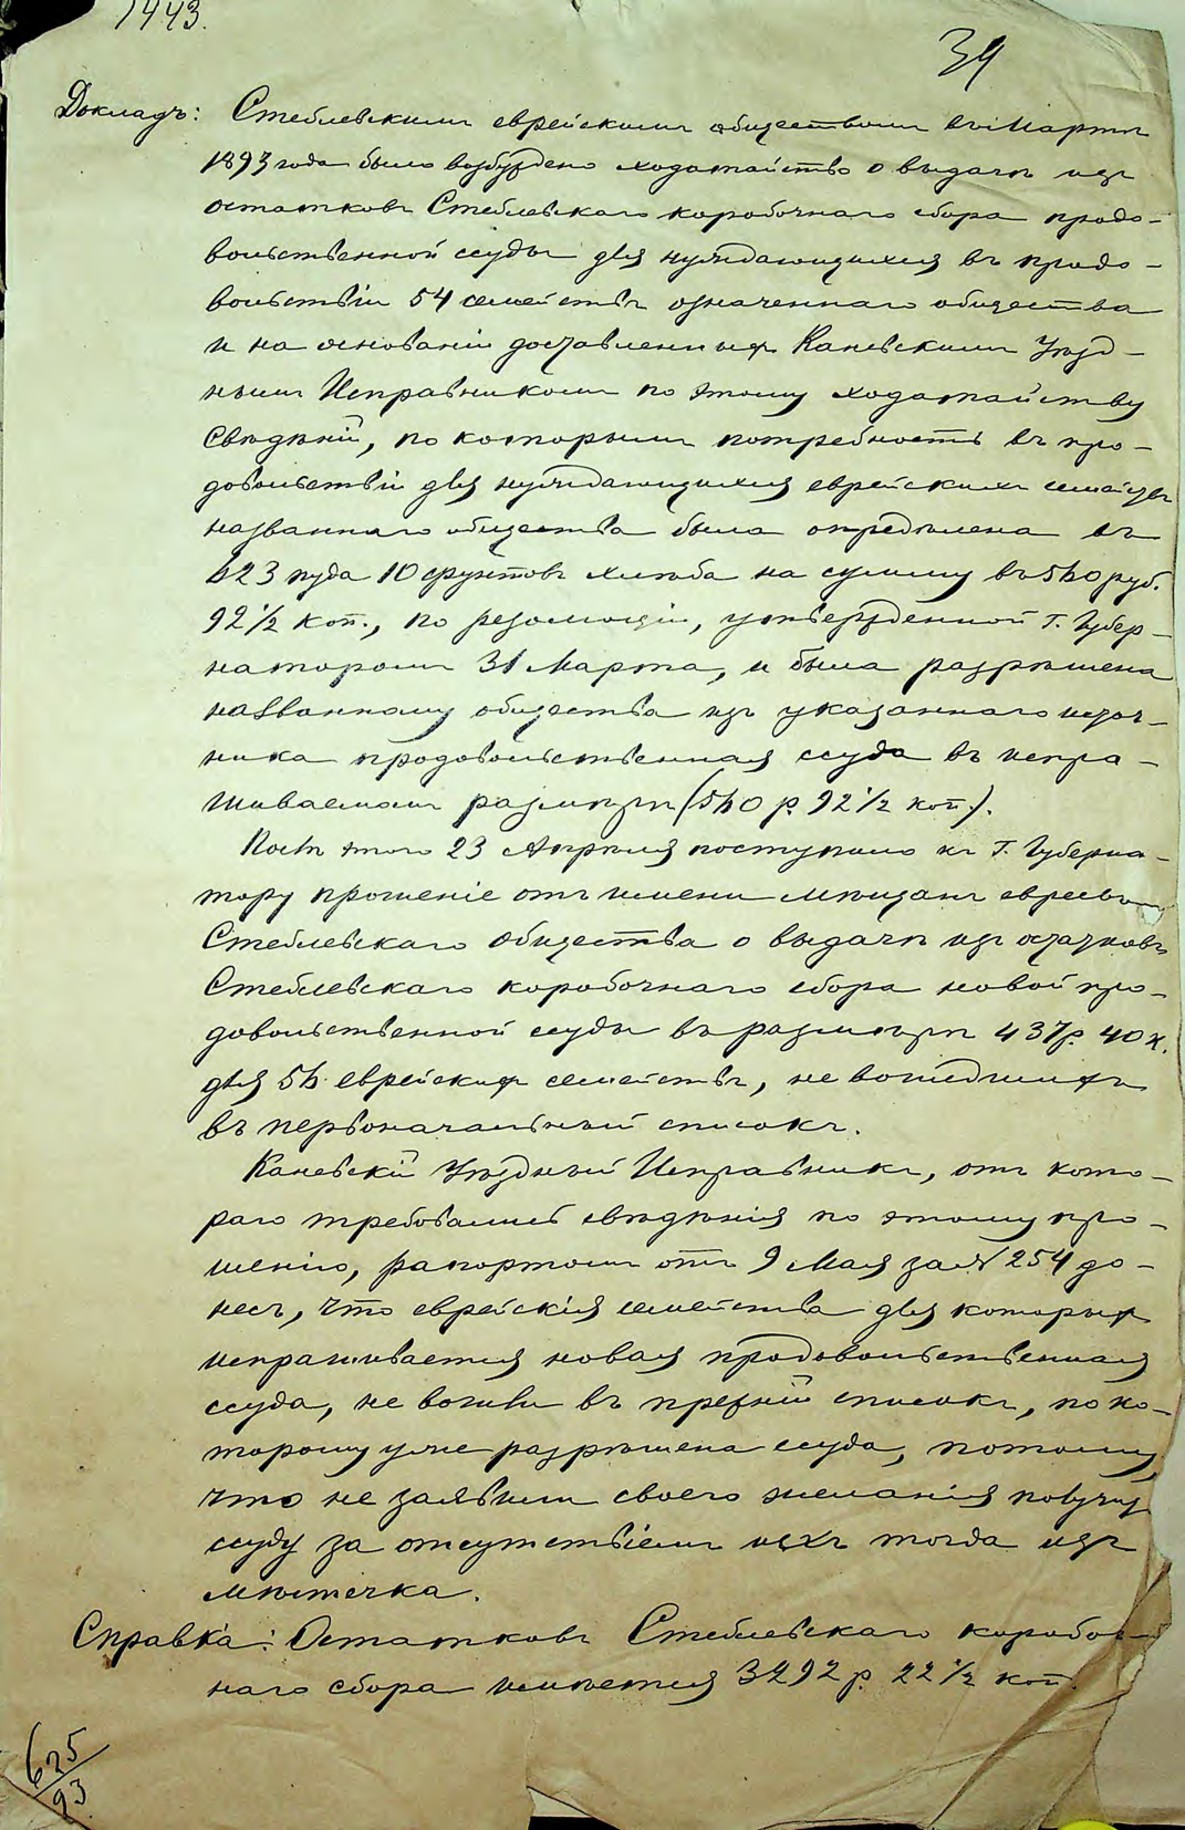 1443.
39
Докладъ: Стеблевскимъ еврейскимъ обществомъ въ Мартѣ
1893 года было возбуждено ходатайство о выдачѣ изъ
остатковъ Стеблевскаго коробочнаго сбора продо-
вольственной ссуды для нуждающихся въ продо-
вольствіи 54 семействъ означеннаго общества
и на основаніи доставленныхъ Каневскимъ Уѣзд-
нымъ Исправникомъ по этому ходатайству
свѣдѣній, по которымъ потребность въ про-
довольствіи для нуждающихся еврейскихъ семействъ
названнаго общества была опредѣлена въ
623 пуда 10 фунтовъ хлѣба на сумму въ 560 руб.
92 1/2 коп., по резолюціи, утвержденной Г. Губер-
наторомъ 31 Марта, и была разрѣшена
названному общества изъ указаннаго источ-
ника продовольственная ссуда въ испра-
шиваемомъ размѣрѣ (560 р. 92 1/2 коп.).
Послѣ этого 23 Апрѣля поступило къ Г. Губерна-
тору прошеніе отъ имени мѣщанъ евреевъ
Стеблевскаго общества о выдачѣ изъ остатковъ
Стеблевскаго коробочнаго сбора новой про-
довольственной ссуды въ размѣрѣ 437 р. 40 к.
для 56 еврейскихъ семействъ, не вошедшихъ
въ первоначальный списокъ.
Каневскій Уѣздный Исправникъ, отъ кото-
раго требовались свѣдѣнія по этому про-
шенію, рапортомъ отъ 9 Мая за № 254 до-
несъ, что еврейскія семейства для которыхъ
испрашивается новая продовольственная
ссуда, не вошли въ прежній списокъ, по ко-
торому уже разрѣшена ссуда, потому,
что не заявили своего желанія получить
ссуду за отсутствіемъ ихъ тогда изъ
мѣстечка.
Справка: Остатковъ Стеблевскаго коробоч-
наго сбора имѣется 3292 р. 22 1/2 коп.
625/93